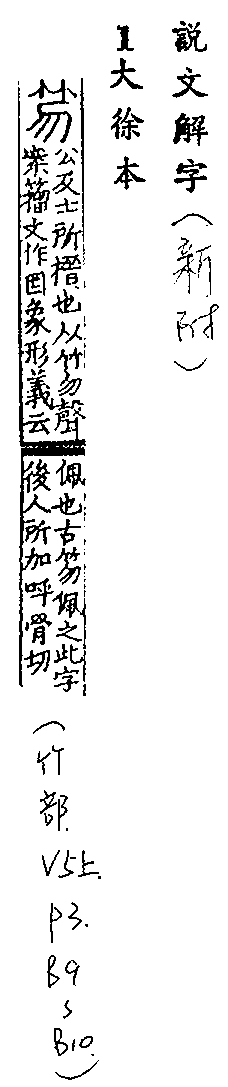 說文解字(新附)
1大徐本
笏
公及士所搢也从竹勿聲
案籀文作𠚌象形義云
佩也古笏佩之此字
後人所加呼骨切
(竹部.V5上.P3.B9~B10.)